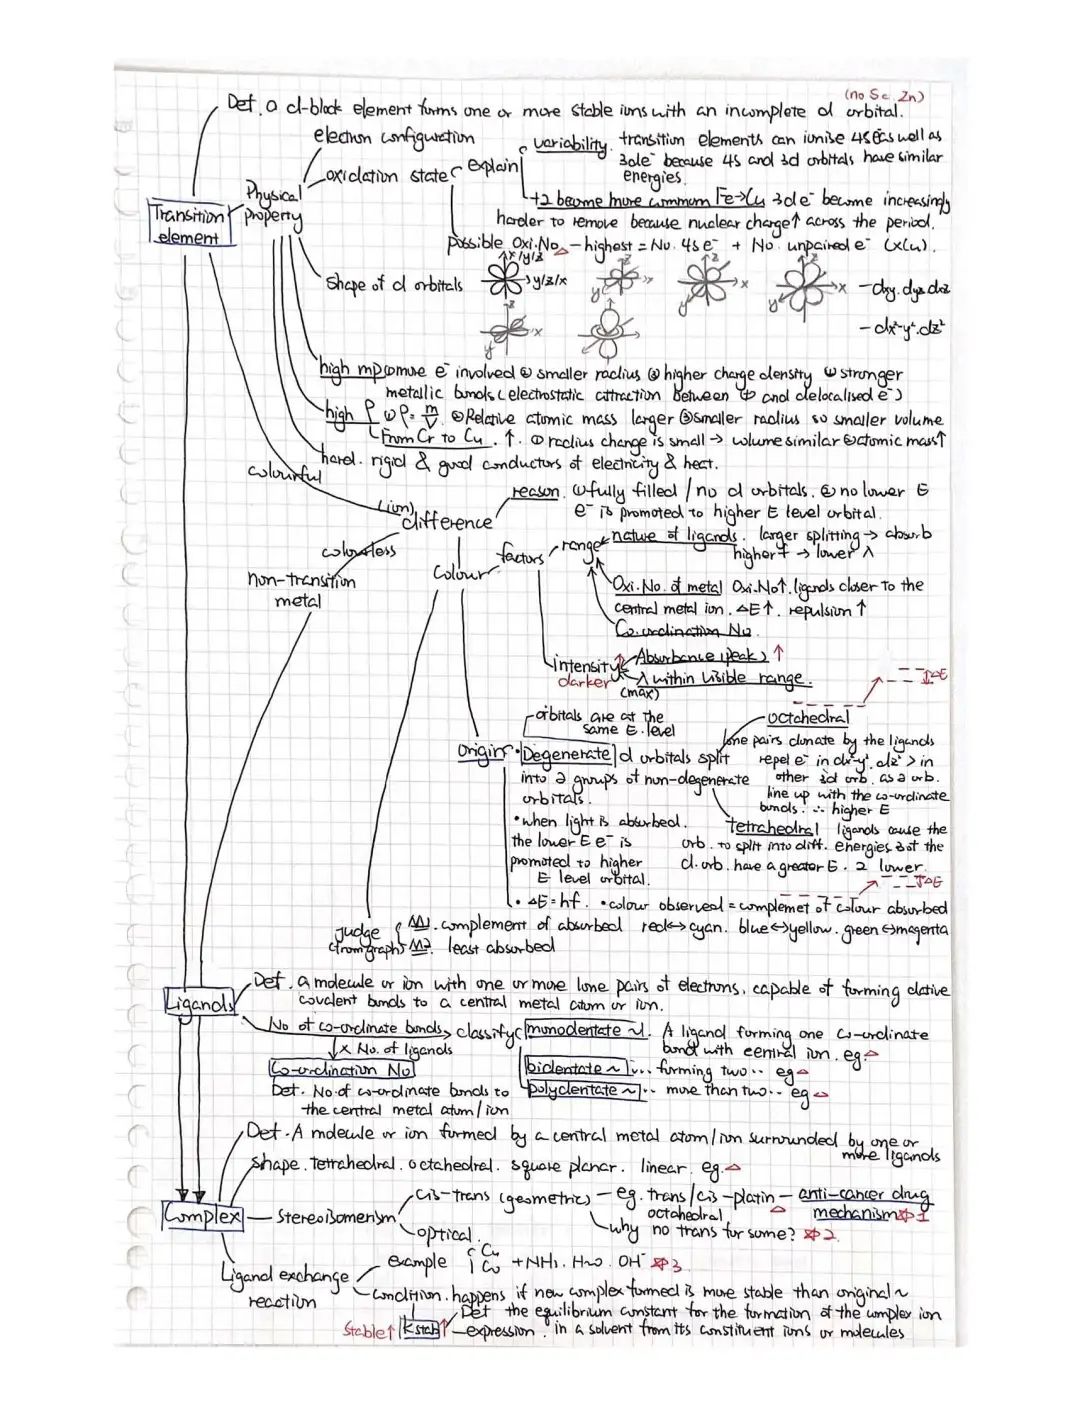 (no Sc. Zn)
Def. a d-block element forms one or more stable ions with an incomplete d orbital.
electron configuration
variability. transition elements can ionise 4s e⁻ as well as
3d e⁻ because 4s and 3d orbitals have similar
energies.
oxidation state explain
Physical
property
Transition
element
+2 become more common Fe→Cu 3d e⁻ become increasingly
harder to remove because nuclear charge↑ across the period.
possible Oxi.No △ – highest = No. 4s e⁻ + No. unpaired e⁻ (xCu).
x/y/z
y/z/x
shape of d orbitals
z
y
z
y
x
z
y
x
z
y
x
– dxy. dyz dxz
– dx²-y². dz²
high mp ① more e⁻ involved ② smaller radius ③ higher charge density ④ stronger
metallic bonds (electrostatic attraction between ⊕ and delocalised e⁻)
high ρ ① ρ = m/V ② Relative atomic mass larger ③ smaller radius so smaller volume
From Cr to Cu. ↑. ① radius change is small → volume similar ② atomic mass↑
hard. rigid & good conductors of electricity & heat.
colourful
reason. ① fully filled / no d orbitals. ② no lower E
e⁻ is promoted to higher E level orbital.
(ion)
difference
colourless
non-transition
metal
Colour
factors
range
nature of ligands. larger splitting → absorb
higher f → lower λ
Oxi.No. of metal Oxi.No↑. ligands closer to the
central metal ion. △E↑. repulsion ↑
Co-ordination No.
intensity
darker
Absorbance (peak) ↑
λ within visible range.
(max)
△E
orbitals are at the
same E. level
origin • Degenerate d orbitals split
into 2 groups of non-degenerate
orbitals.
• when light is absorbed.
the lower E e⁻ is
promoted to higher
E level orbital.
octahedral
lone pairs donate by the ligands
repel e⁻ in dx²-y². dz² > in
other 3d orb. as 2 orb.
line up with the co-ordinate
bonds. ∴ higher E
tetrahedral ligands cause the
orb. to split into diff. energies 3 of the
d. orb. have a greater E. 2 lower.
△E
• △E = hf. • colour observed = complemet of colour absorbed
judge
(from graph)
M1. complement of absorbed red↔cyan. blue↔yellow. green↔magenta
M2. least absorbed
Ligands
Def. a molecule or ion with one or more lone pairs of electrons, capable of forming dative
covalent bonds to a central metal atom or ion.
No of co-ordinate bonds → classify monodentate ~. A ligand forming one co-ordinate
bond with central ion. eg.△
× No. of ligands
Co-ordination No
bidentate ~ ... forming two .. eg △
polydentate ~ .. more than two .. eg △
Def. No. of co-ordinate bonds to
the central metal atom/ion
Def. A molecule or ion formed by a central metal atom/ion surrounded by one or
more ligands
shape. tetrahedral. octahedral. square planar. linear. eg.△
Complex – stereoisomerism
cis-trans (geometric) – eg. trans/cis-platin – anti-cancer drug
octahedral △ mechanism ☆1
why no trans for some? ☆2
optical.
Ligand exchange
reaction
example { Cu Co + NH₃. H₂O. OH⁻ ☆3
condition. happens if new complex formed is more stable than original ~
Def the equilibrium constant for the formation of the complex ion
stable↑ Kstab↑ expression. in a solvent from its constituent ions or molecules